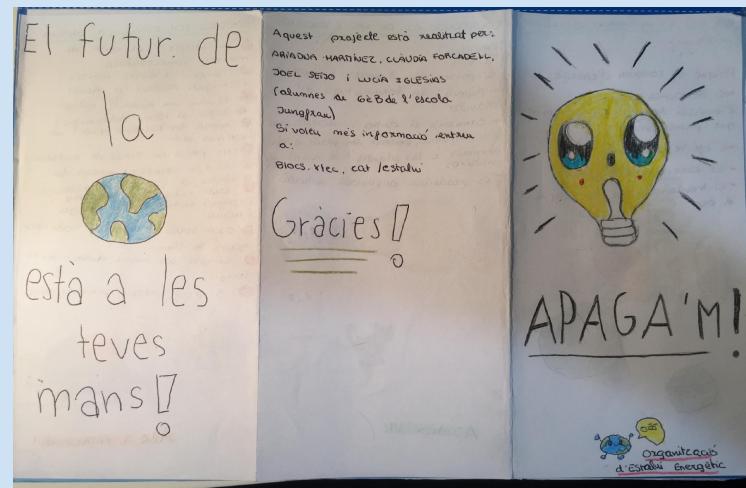 El futur de
la
està a les
teves
mans!
Aquest projecte està realitzat per:
ARIADNA MARTÍNEZ, CLÀUDIA FORCADELL,
JOEL SEIJO i LUCÍA IGLESIAS
(alumnes de 6èB de l'escola
Jungfrau)
Si voleu més informació entreu
a:
Blocs.xtec.cat/estalvi
Gràcies!
APAGA'M!
OEE
Organització
d'Estalvi Energètic